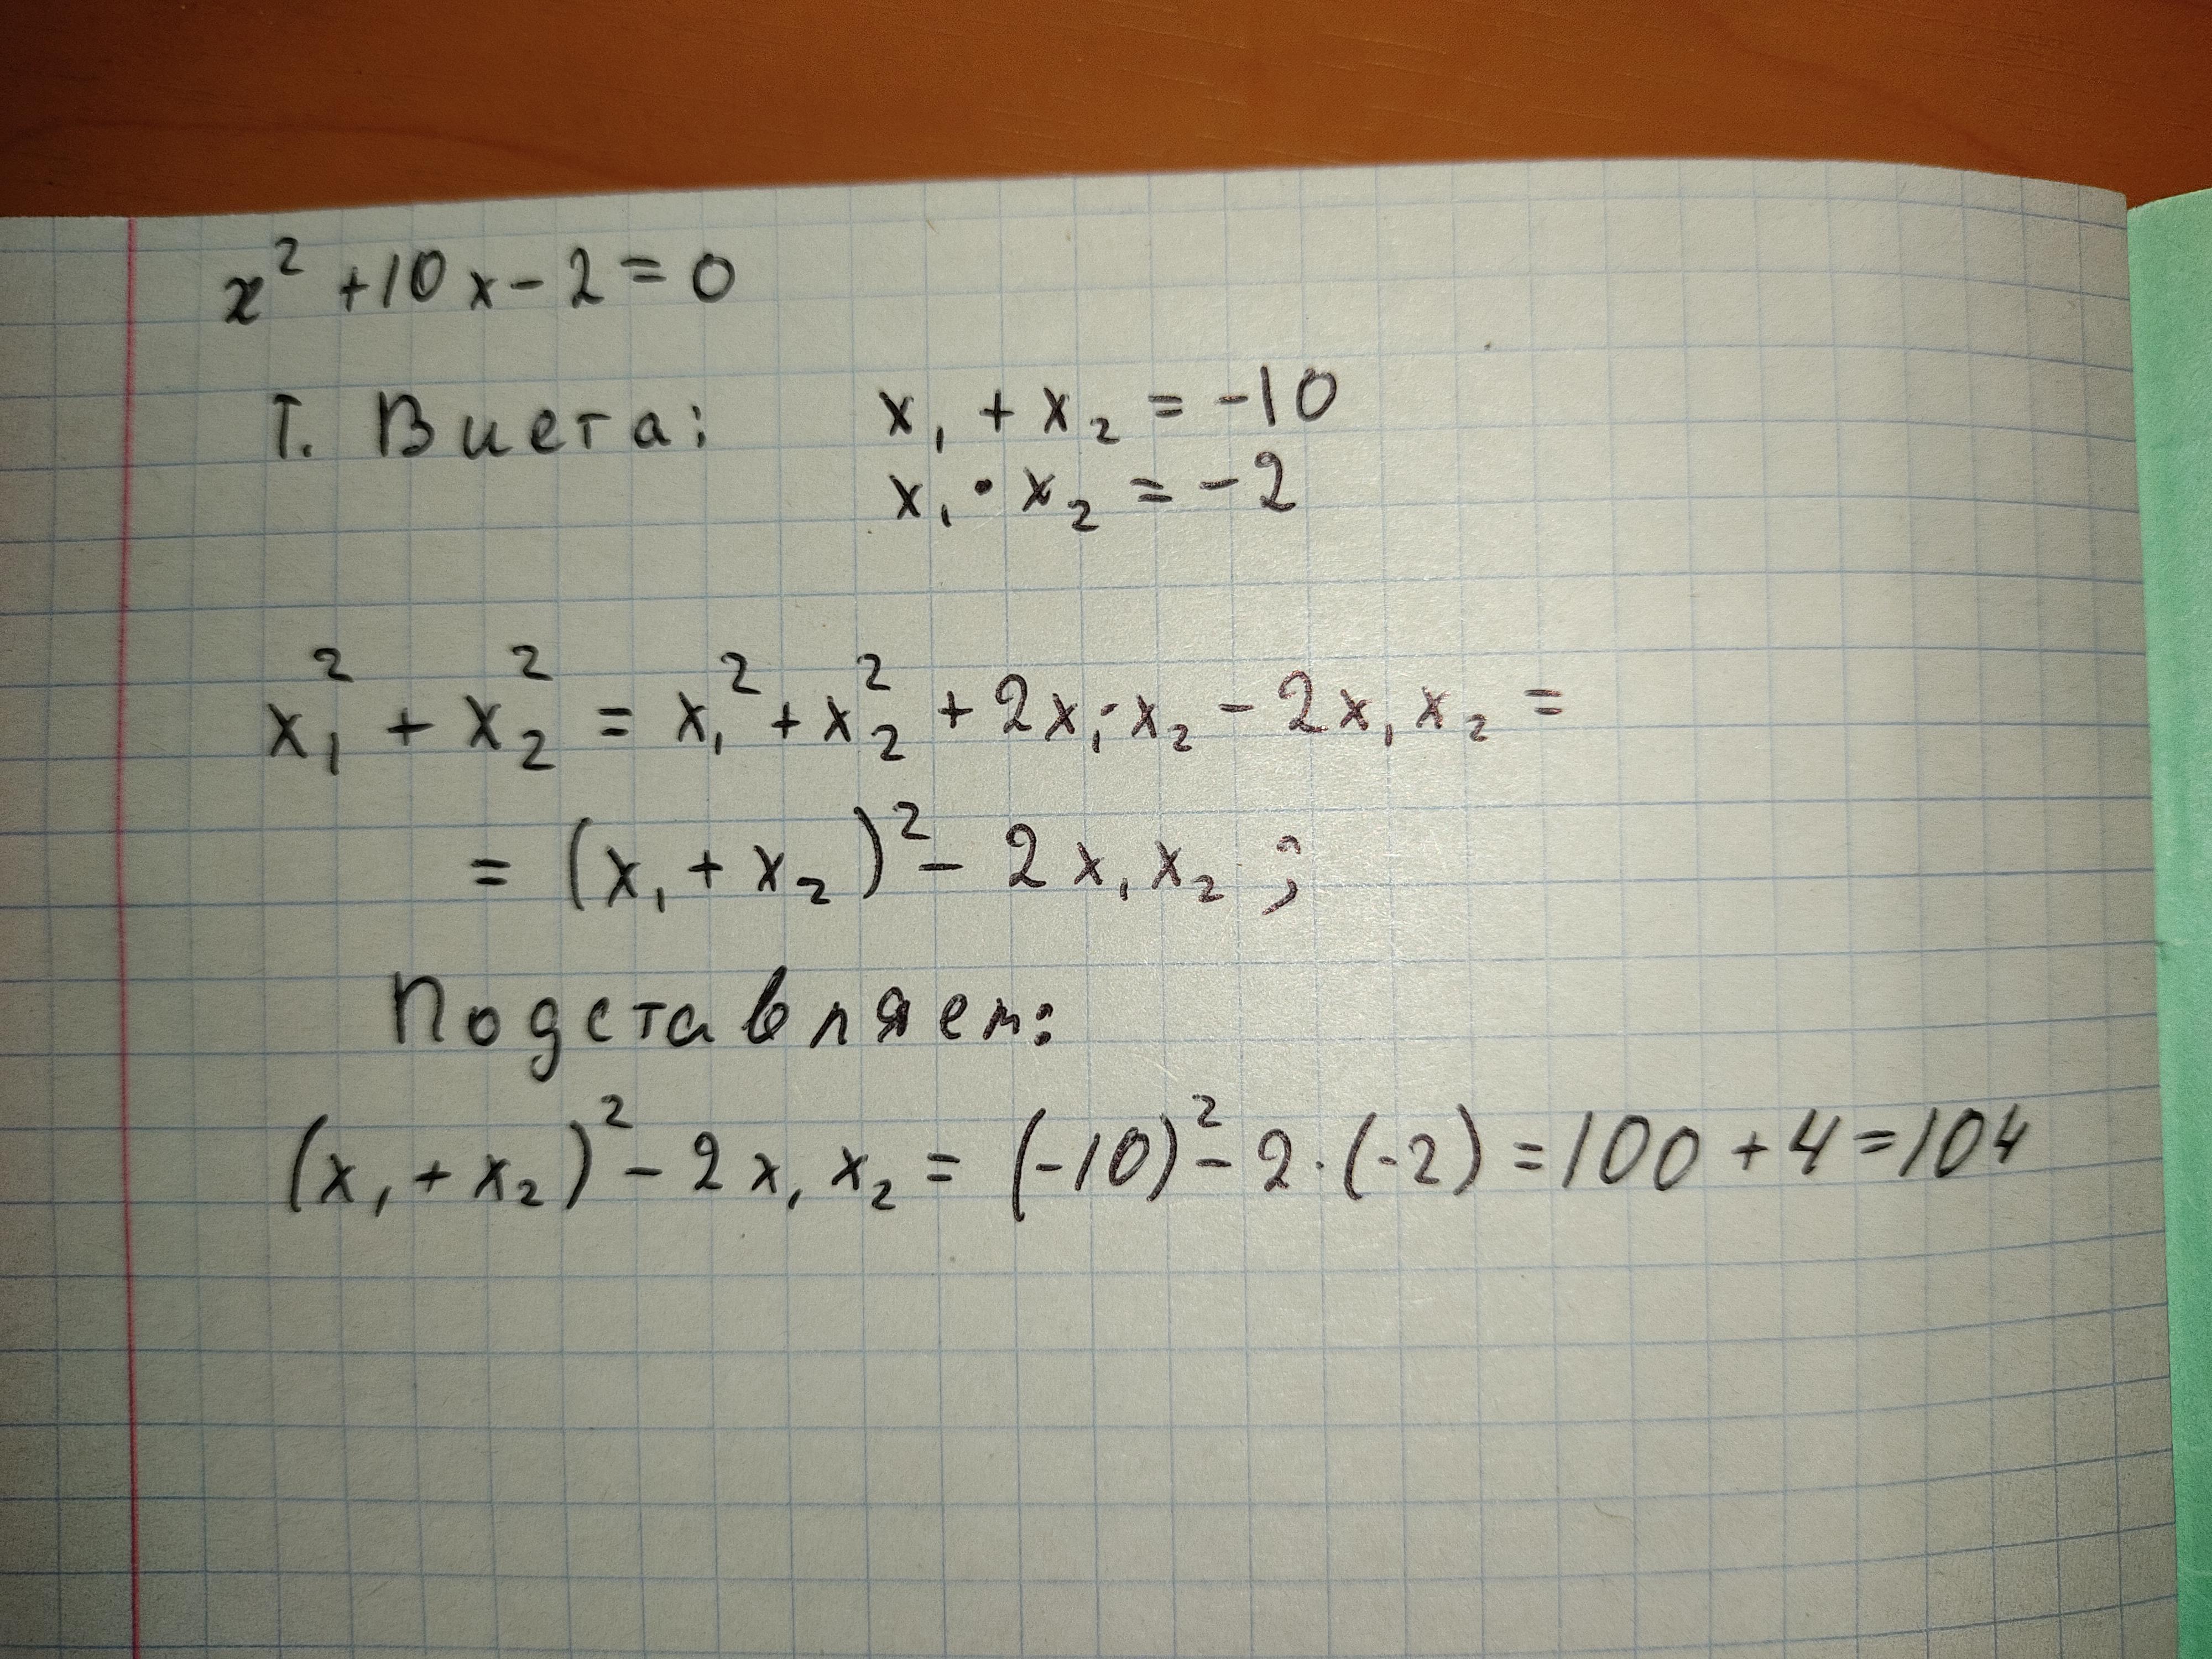 x² + 10x - 2 = 0
Т. Виета: x₁ + x₂ = -10
x₁ · x₂ = -2
x₁² + x₂² = x₁² + x₂² + 2x₁·x₂ - 2x₁x₂ =
= (x₁ + x₂)² - 2x₁x₂ ;
Подставляем:
(x₁ + x₂)² - 2x₁x₂ = (-10)² - 2·(-2) = 100 + 4 = 104